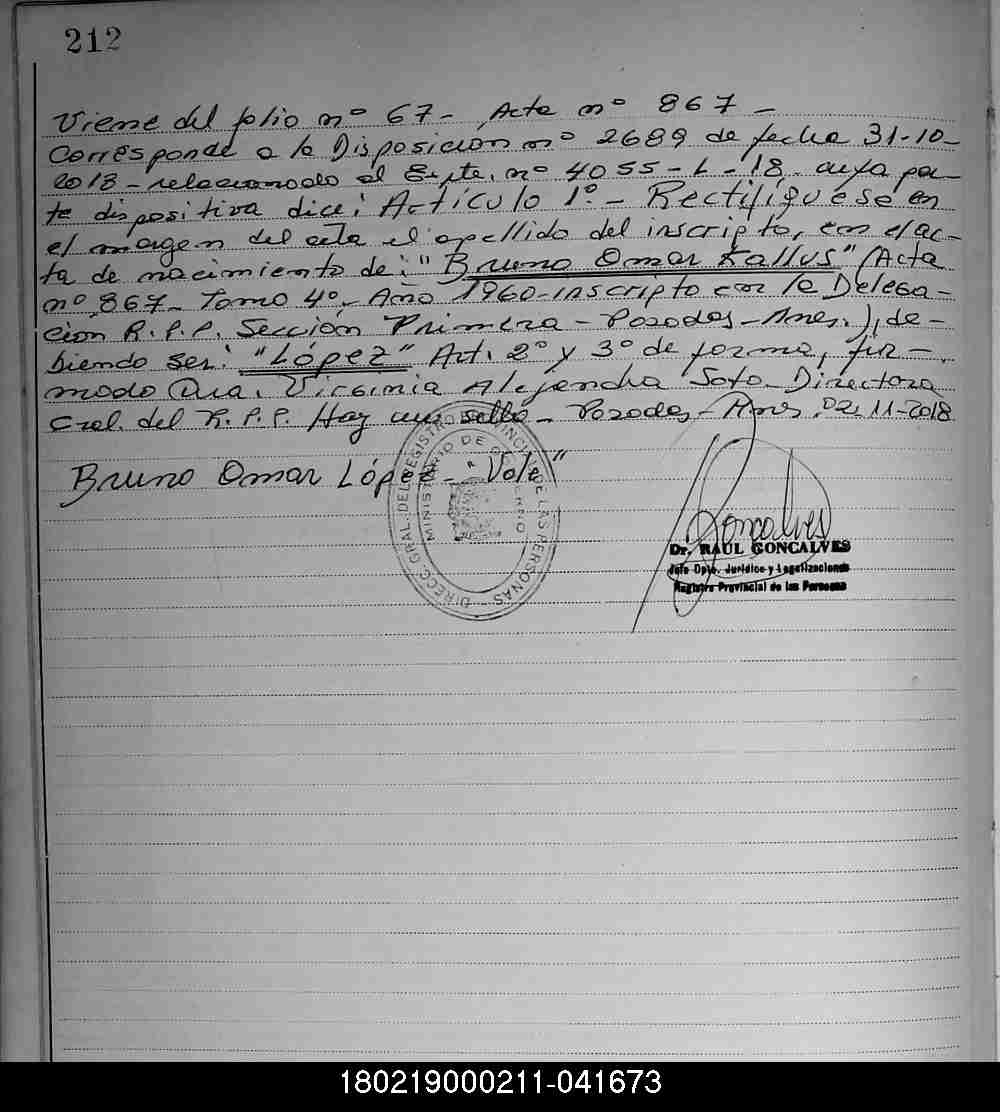 212
Viene del folio nº 67 - Acta nº 867 -
Corresponde a la Disposición nº 2689 de fecha 31-10-
2018 - relacionado al Expte. nº 4055 - L - 18. cuya par-
te dispositiva dice: Artículo 1º - Rectifíquese en
el margen del acta el apellido del inscripto, en el ac-
ta de nacimiento de: "Bruno Omar Kallus" (Acta
nº 867 - Tomo 4º - Año 1960 - inscripto en la Delega-
ción R.P.P. Sección Primera - Posadas - Mnes.), de-
biendo ser: "López" Art. 2º y 3º de forma, fir-
mado Dra. Virginia Alejandra Soto - Directora
Gral. del R.P.P. Hay un sello - Posadas - Mnes. 02-11-2018
Bruno Omar López - Vale"
DIRECC. GRAL. DEL REGISTRO PROVINCIAL DE LAS PERSONAS
MINISTERIO DE GOBIERNO
Goncalves
Dr. RAUL GONCALVES
Jefe Dpto. Jurídico y Legalizaciones
Registro Provincial de las Personas
180219000211-041673